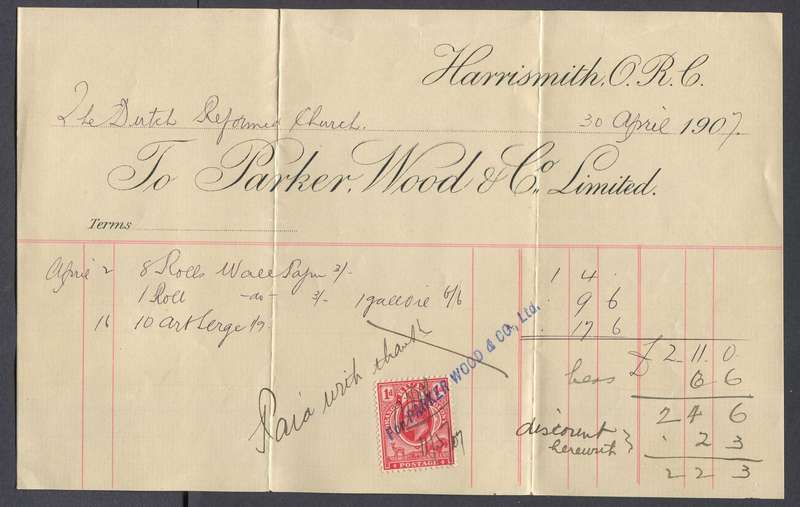 Harrismith, O.R.C.
The Dutch Reformed Church. 30 April 1907.
To Parker, Wood & Co., Limited.
Terms
April 2 8 Rolls Wall Paper 3/- 1 4 .
1 Roll -do- 3/- 1 gall Oil 6/6 . 9 6
16 10 Art Serge 1/9 . 17 6
£ 2 11 . 0
Less 6 6
2 4 6
discount herewith } . 2 3
2 2 3
Paid with thanks
For PARKER WOOD & CO., Ltd.
1d 1d
POSTAGE
07